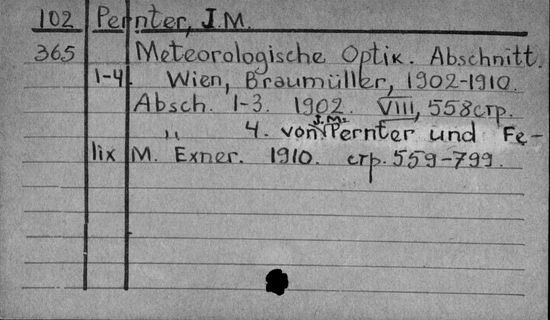 102 Pernter, J.M.
365 Meteorologische Optik. Abschnitt.
1-4. Wien, Braumüller, 1902-1910.
Absch. 1-3. 1902. VIII, 558стр.
„ 4. von J.M. Pernter und Fe-
lix M. Exner. 1910. стр. 559-799.